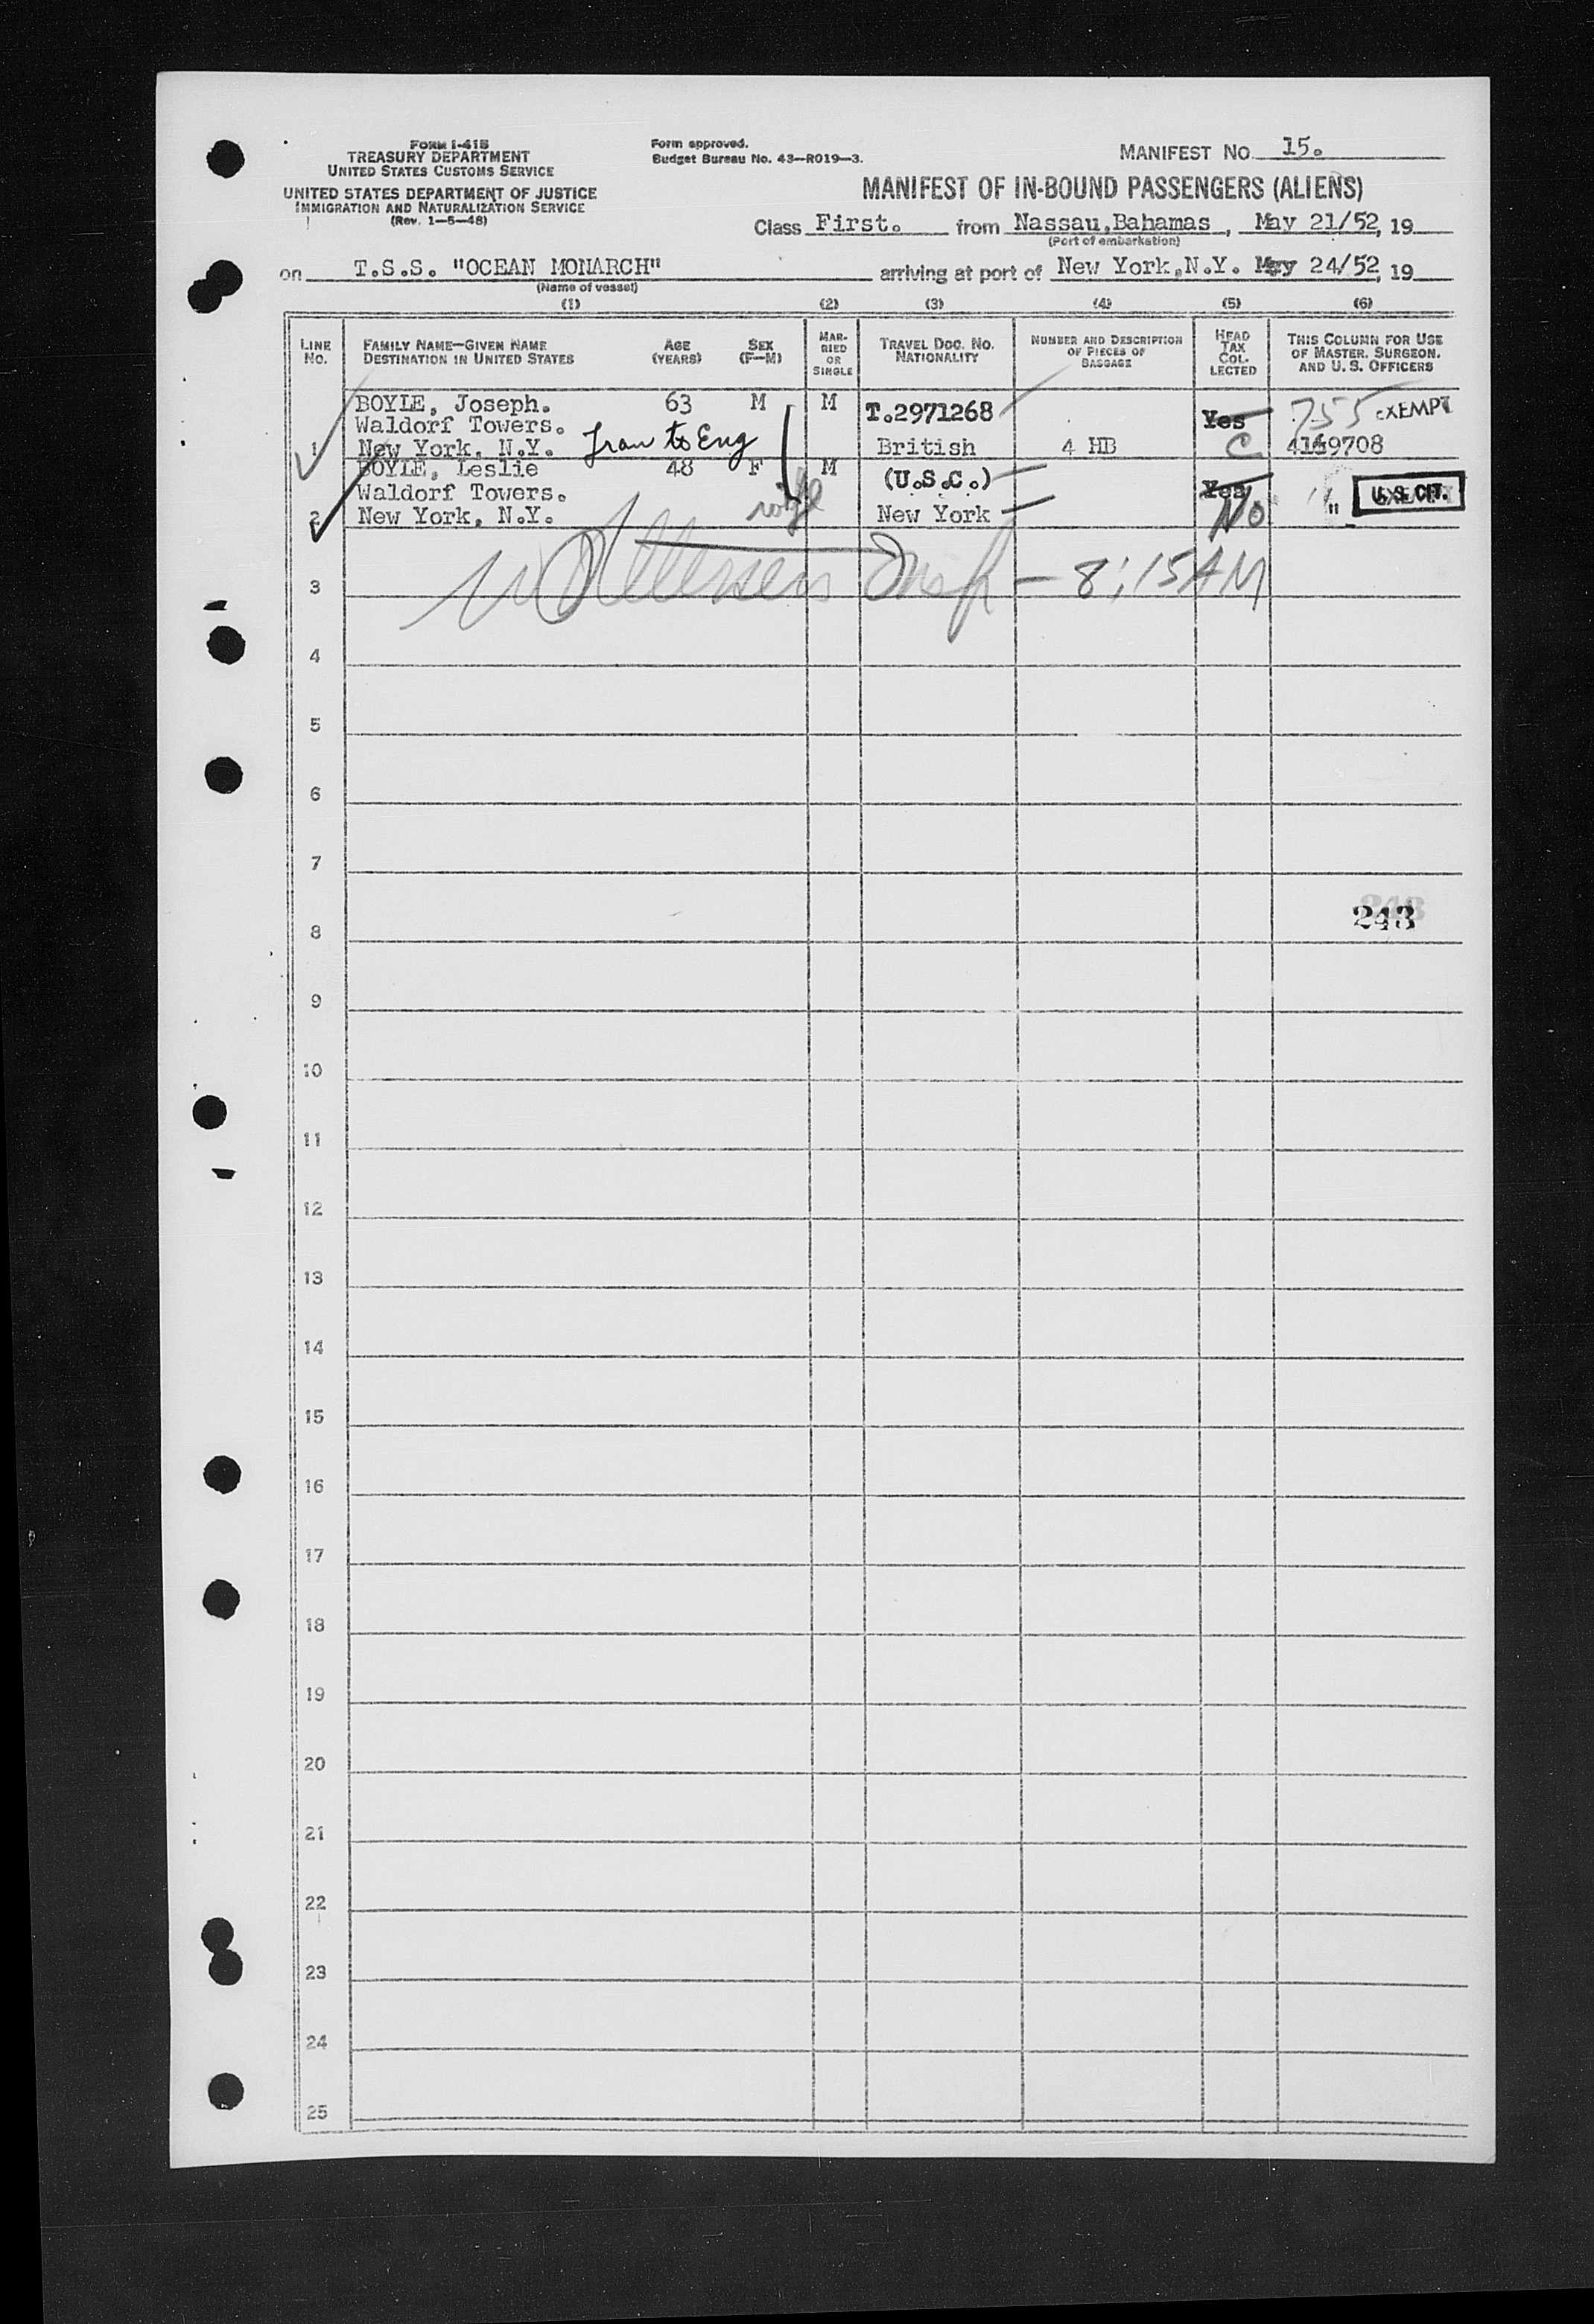 FORM I-415
TREASURY DEPARTMENT
UNITED STATES CUSTOMS SERVICE
UNITED STATES DEPARTMENT OF JUSTICE
IMMIGRATION AND NATURALIZATION SERVICE
(Rev. 1-5-48)
Form approved.
Budget Bureau No. 43-R019-3.
MANIFEST NO. 15.
MANIFEST OF IN-BOUND PASSENGERS (ALIENS)
Class First. from Nassau,Bahamas, May 21/52, 19
(Port of embarkation)
on T.S.S. "OCEAN MONARCH" arriving at port of New York,N.Y. May 24/52, 19
(Name of vessel)
(1) (2) (3) (4) (5) (6)
LINE NO.
FAMILY NAME—GIVEN NAME
DESTINATION IN UNITED STATES
AGE (YEARS)
SEX (F—M)
MARRIED OR SINGLE
TRAVEL DOC. NO.
NATIONALITY
NUMBER AND DESCRIPTION OF PIECES OF BAGGAGE
HEAD TAX COLLECTED
THIS COLUMN FOR USE OF MASTER, SURGEON, AND U. S. OFFICERS
BOYLE, Joseph. 63 M M T.2971268 Yes 755 EXEMPT
Waldorf Towers.
1 New York, N.Y. Tran to Eng British 4 HB C
BOYLE, Leslie 48 F M (U.S.C.) Yes
Waldorf Towers. wife " U.S. CIT.
2 New York, N.Y. New York No
3 Insp — 8:15 AM
4
5
6
7
243
8
9
10
11
12
13
14
15
16
17
18
19
20
21
22
23
24
25